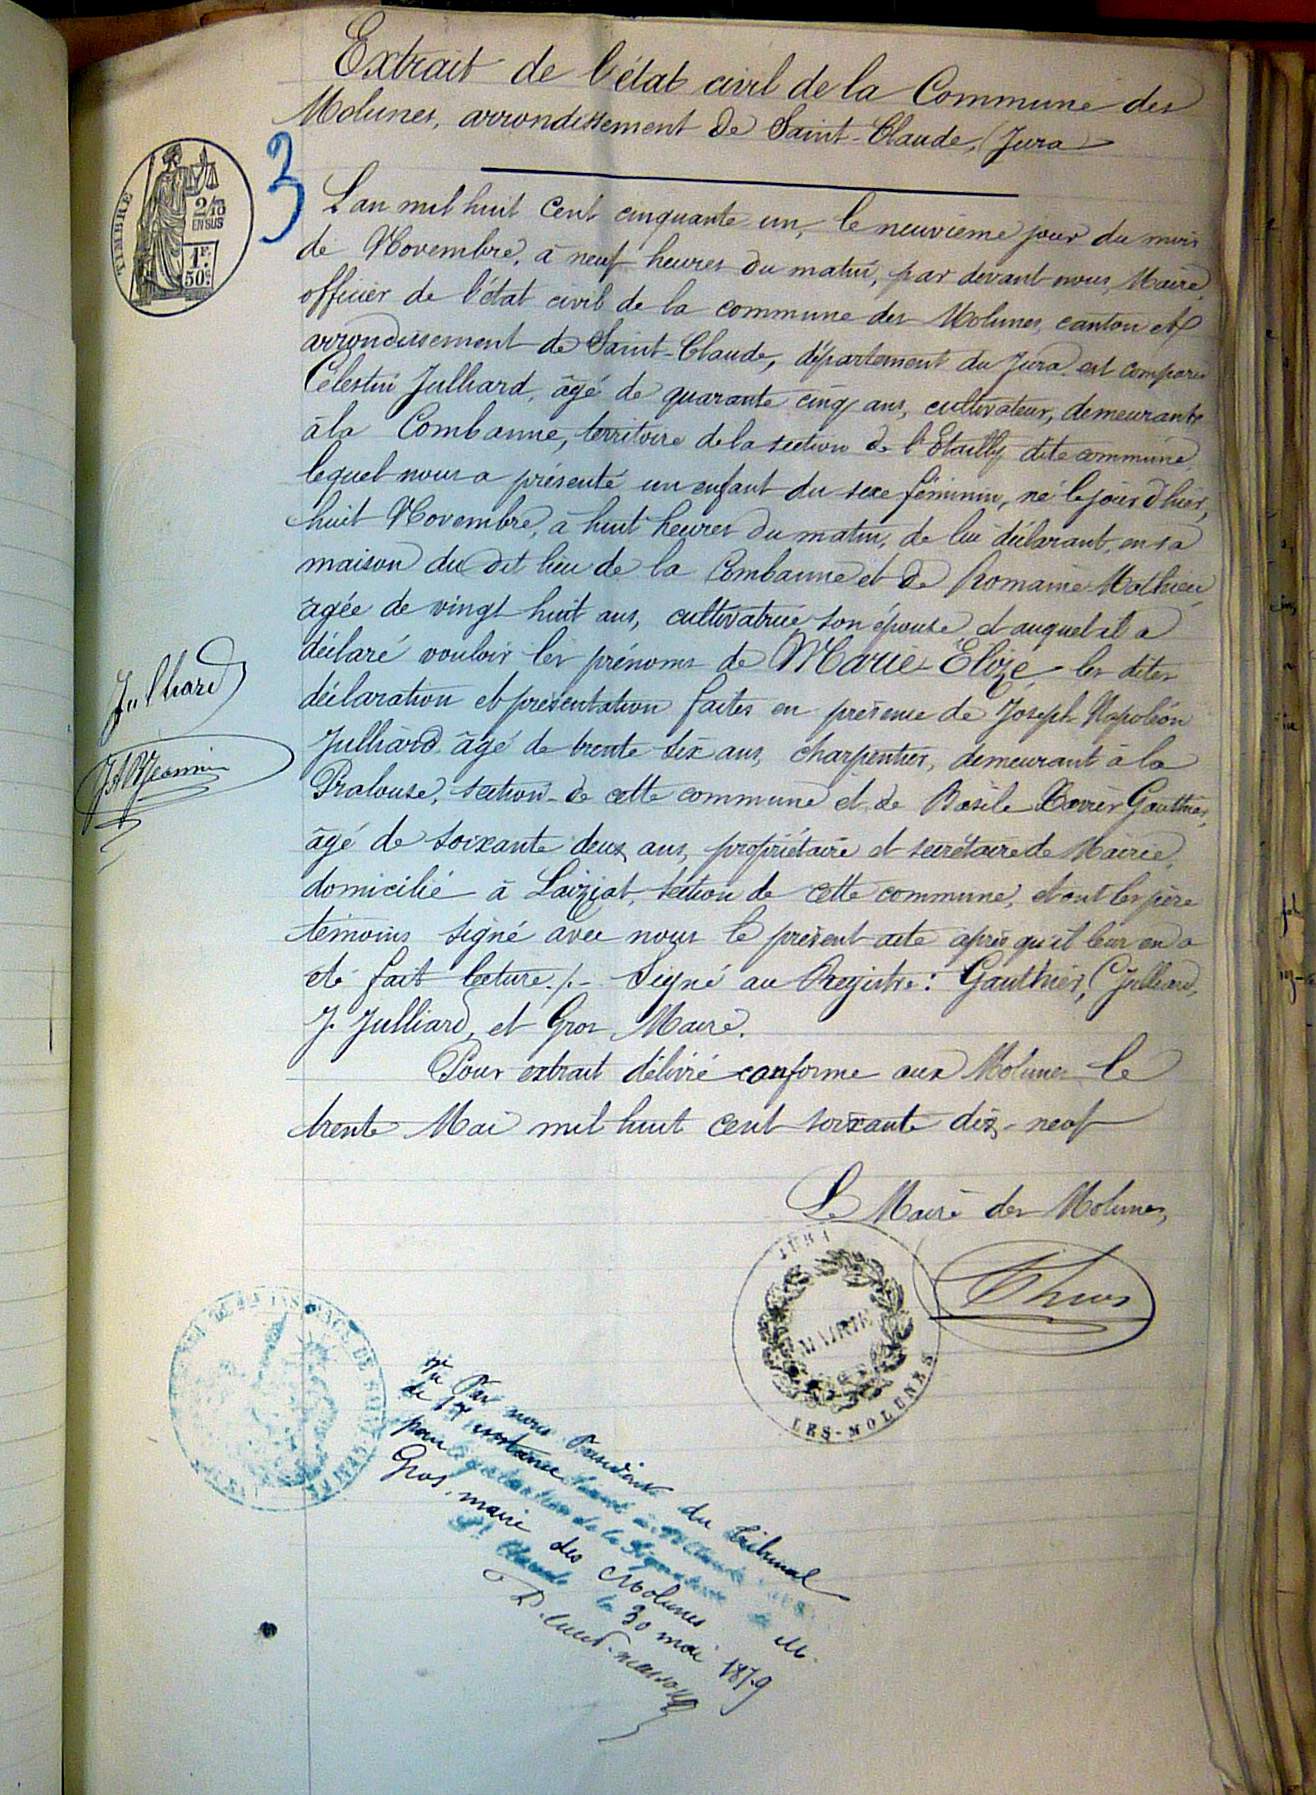 Extrait de l'état civil de la Commune des
Molunes, arrondissement de Saint-Claude, (Jura)
TIMBRE
2/10
EN SUS
1F.
50c.
3
L'an mil huit cent cinquante un, le neuvième jour du mois
de Novembre, à neuf heures du matin, par devant nous, Maire,
officier de l'état civil de la commune des Molunes, canton et
arrondissement de Saint-Claude, département du Jura est comparu
Célestin Julliard, âgé de quarante cinq ans, cultivateur, demeurant
à la Combanne, territoire de la section de l'Etailly dite commune,
lequel nous a présenté un enfant du sexe féminin, né le jour d'hier,
huit Novembre, à huit heures du matin, de lui déclarant, en sa
maison du dit lieu de la Combanne et de Romaine Mathieu
agée de vingt huit ans, cultivatrice son épouse et auquel il a
déclaré vouloir les prénoms de Marie-Elize, les dites
déclaration et présentation faites en présence de Joseph Napoléon
Julliard âgé de trente six ans, charpentier, demeurant à la
Pralouse, section de cette commune et de Basile Xavier Gauthier,
âgé de soixante deux ans, propriétaire et secrétaire de Mairie,
domicilié à Laiziat, section de cette commune, et ont les père
témoins signé avec nous le présent acte après qu'il leur en a
été fait lecture ./- Signé au Registre: Gauthier, C Julliard,
J. Julliard, et Gros Maire.
Julliard
Jeannin
Pour extrait délivré conforme aux Molunes le
trente Mai mil huit cent soixante dix-neuf
Le Maire des Molunes,
JURA
MAIRIE
LES-MOLUNES
Vu Par nous Président du tribunal
de 1re instance séant à St Claude
pour légalisation de la signature de M.
Gros, maire des Molunes
St Claude le 30 mai 1879